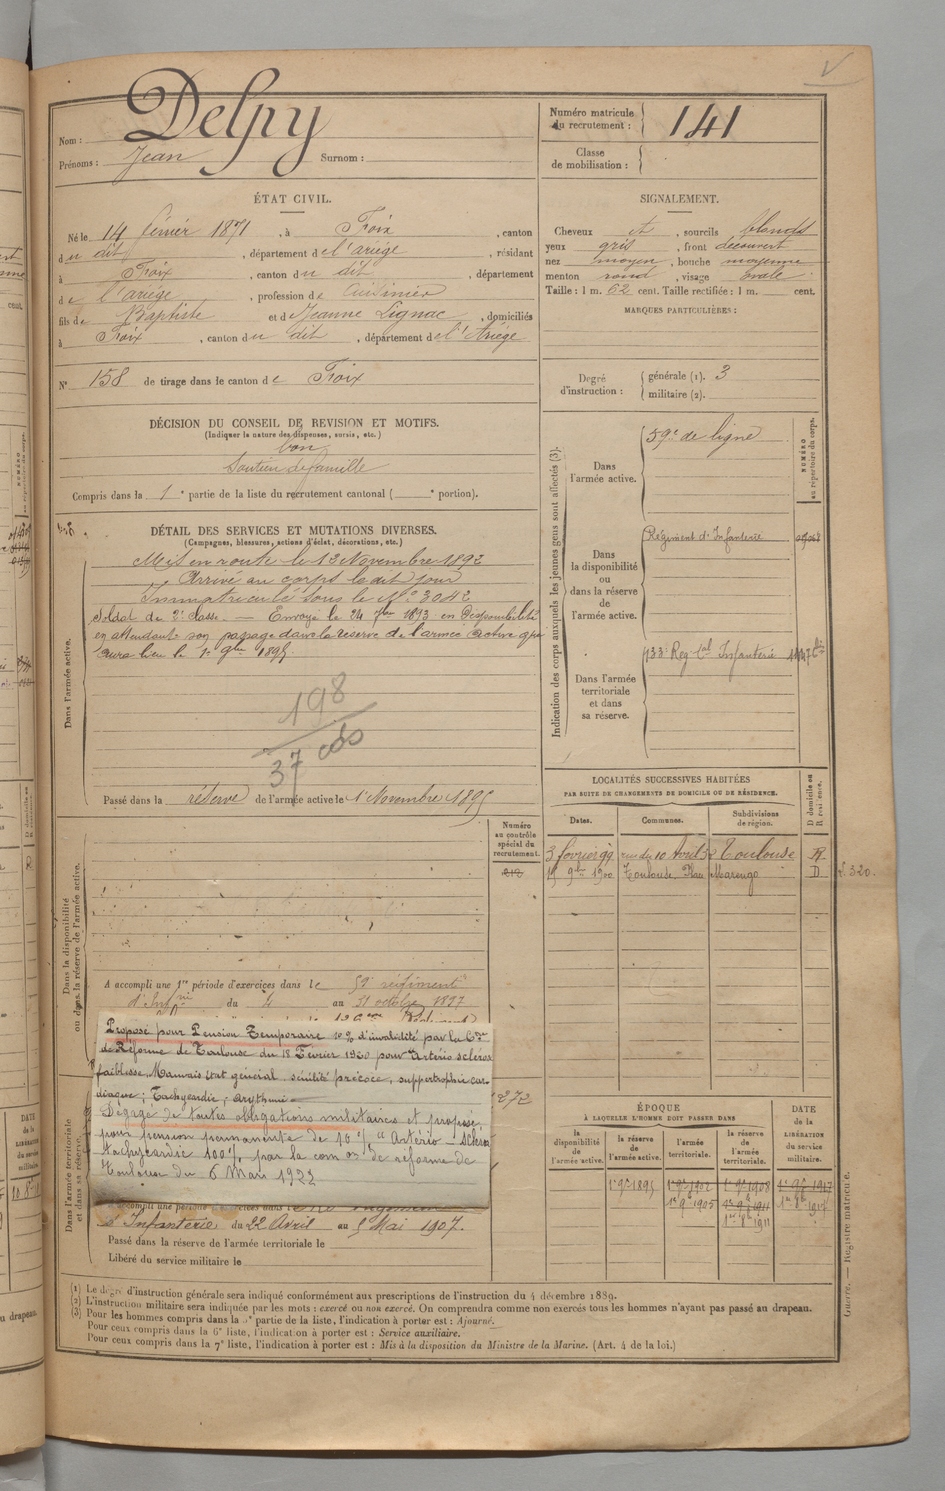 Delpy
Nom :
Prénoms : Jean Surnom :
Numéro matricule du recrutement : 141
Classe de mobilisation :
ÉTAT CIVIL.
Né le 14 février 1871, à Foix, canton
du dit, département de l'ariège, résidant
à Foix, canton du dit, département
de l'ariège, profession de Cuisinier
fils de Baptiste et de Jeanne Lignac, domiciliés
à Foix, canton du dit, département de l'Ariège
N° 158 de tirage dans le canton de Foix
SIGNALEMENT.
Cheveux et, sourcils blonds
yeux gris, front découvert
nez moyen, bouche moyenne
menton rond, visage ovale
Taille : 1 m. 62 cent. Taille rectifiée : 1 m. cent.
MARQUES PARTICULIÈRES :
Degré d'instruction : générale (1). 3
militaire (2).
DÉCISION DU CONSEIL DE REVISION ET MOTIFS.
(Indiquer la nature des dispenses, sursis, etc.)
bon
Soutien de famille
Compris dans la 1e partie de la liste du recrutement cantonal ( e portion).
DÉTAIL DES SERVICES ET MUTATIONS DIVERSES.
(Campagnes, blessures, actions d'éclat, décorations, etc.)
Dans l'armée active.
Mis en route le 12 Novembre 1892
Arrivé au corps le dit jour
Immatriculé sous le N° 3042
Soldat de 2e classe. — Envoyé le 24 7bre 1893 en Disponibilité
en attendant son passage dans la réserve de l'armée active qui
aura lieu le 1er 9bre 1895.
198
37 cds
Passé dans la réserve de l'armée active le 1er Novembre 1895
Indication des corps auxquels les jeunes gens sont affectés (3).
NUMÉRO au répertoire du corps.
Dans l'armée active.
59e de ligne
Dans la disponibilité ou dans la réserve de l'armée active.
Régiment d'Infanterie
Dans l'armée territoriale et dans sa réserve.
133e Reg. tal Infanterie
LOCALITÉS SUCCESSIVES HABITÉES
PAR SUITE DE CHANGEMENTS DE DOMICILE OU DE RÉSIDENCE.
D domicile ou R résidence.
Dates. Communes. Subdivisions de région.
3 février 99 rue du 10 Avril 52 Toulouse R
15 9bre 1900 Toulouse, Place Marengo D
Dans la disponibilité ou dans la réserve de l'armée active.
Numéro au contrôle spécial du recrutement.
A accompli une 1re période d'exercices dans le 59e régiment
d'Infrie du 4 au 31 octobre 1897
Proposé pour Pension Temporaire 10 % d'invalidité par la Con
de Réforme de Toulouse du 18 Février 1920 pour Artério sclérose
faiblesse. Mauvais état général sénilité précoce, hypertrophie car-
diaque ; Tachycardie ; arythmie
Dégagé de toutes obligations militaires et proposé
pour pension permanente de 10 % "Artério-scléro
tachycardie 100 %, par la com on de réforme de
Toulouse du 6 Mars 1923
Dans l'armée territoriale et dans sa réserve.
d'Infanterie du 22 Avril au 5 Mai 1907.
Passé dans la réserve de l'armée territoriale le
Libéré du service militaire le
ÉPOQUE
À LAQUELLE L'HOMME DOIT PASSER DANS
DATE de la LIBÉRATION du service militaire.
la disponibilité de l'armée active. la réserve de l'armée active. l'armée territoriale. la réserve de l'armée territoriale.
1er 9bre 1895 1er 9bre 1902 1er 9bre 1908 1er 9bre 1917
(1) Le degré d'instruction générale sera indiqué conformément aux prescriptions de l'instruction du 4 décembre 1889.
(2) L'instruction militaire sera indiquée par les mots : exercé ou non exercé. On comprendra comme non exercés tous les hommes n'ayant pas passé au drapeau.
(3) Pour les hommes compris dans la 5e partie de la liste, l'indication à porter est : Ajourné.
Pour ceux compris dans la 6e liste, l'indication à porter est : Service auxiliaire.
Pour ceux compris dans la 7e liste, l'indication à porter est : Mis à la disposition du Ministre de la Marine. (Art. 4 de la loi.)
Guerre. — Registre matricule.